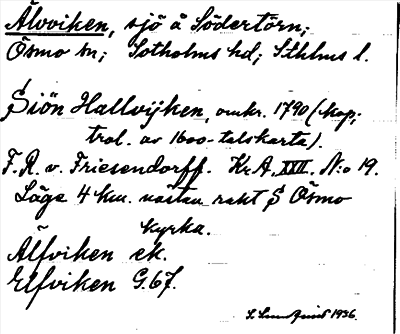 Älvviken, sjö å Södertörn;
Ösmo sn; Sotholms hd; Sthlms l.
Siön Hallvijken, omkr. 1790 (kop;
trol. av 1600-talskarta).
F. R. v. Friesendorff. Kr.A. XXII. N:o 19.
Läge 4 km. nästan rakt S Ösmo
kyrka.
Älfviken ek.
Elfviken G.67.
1936.